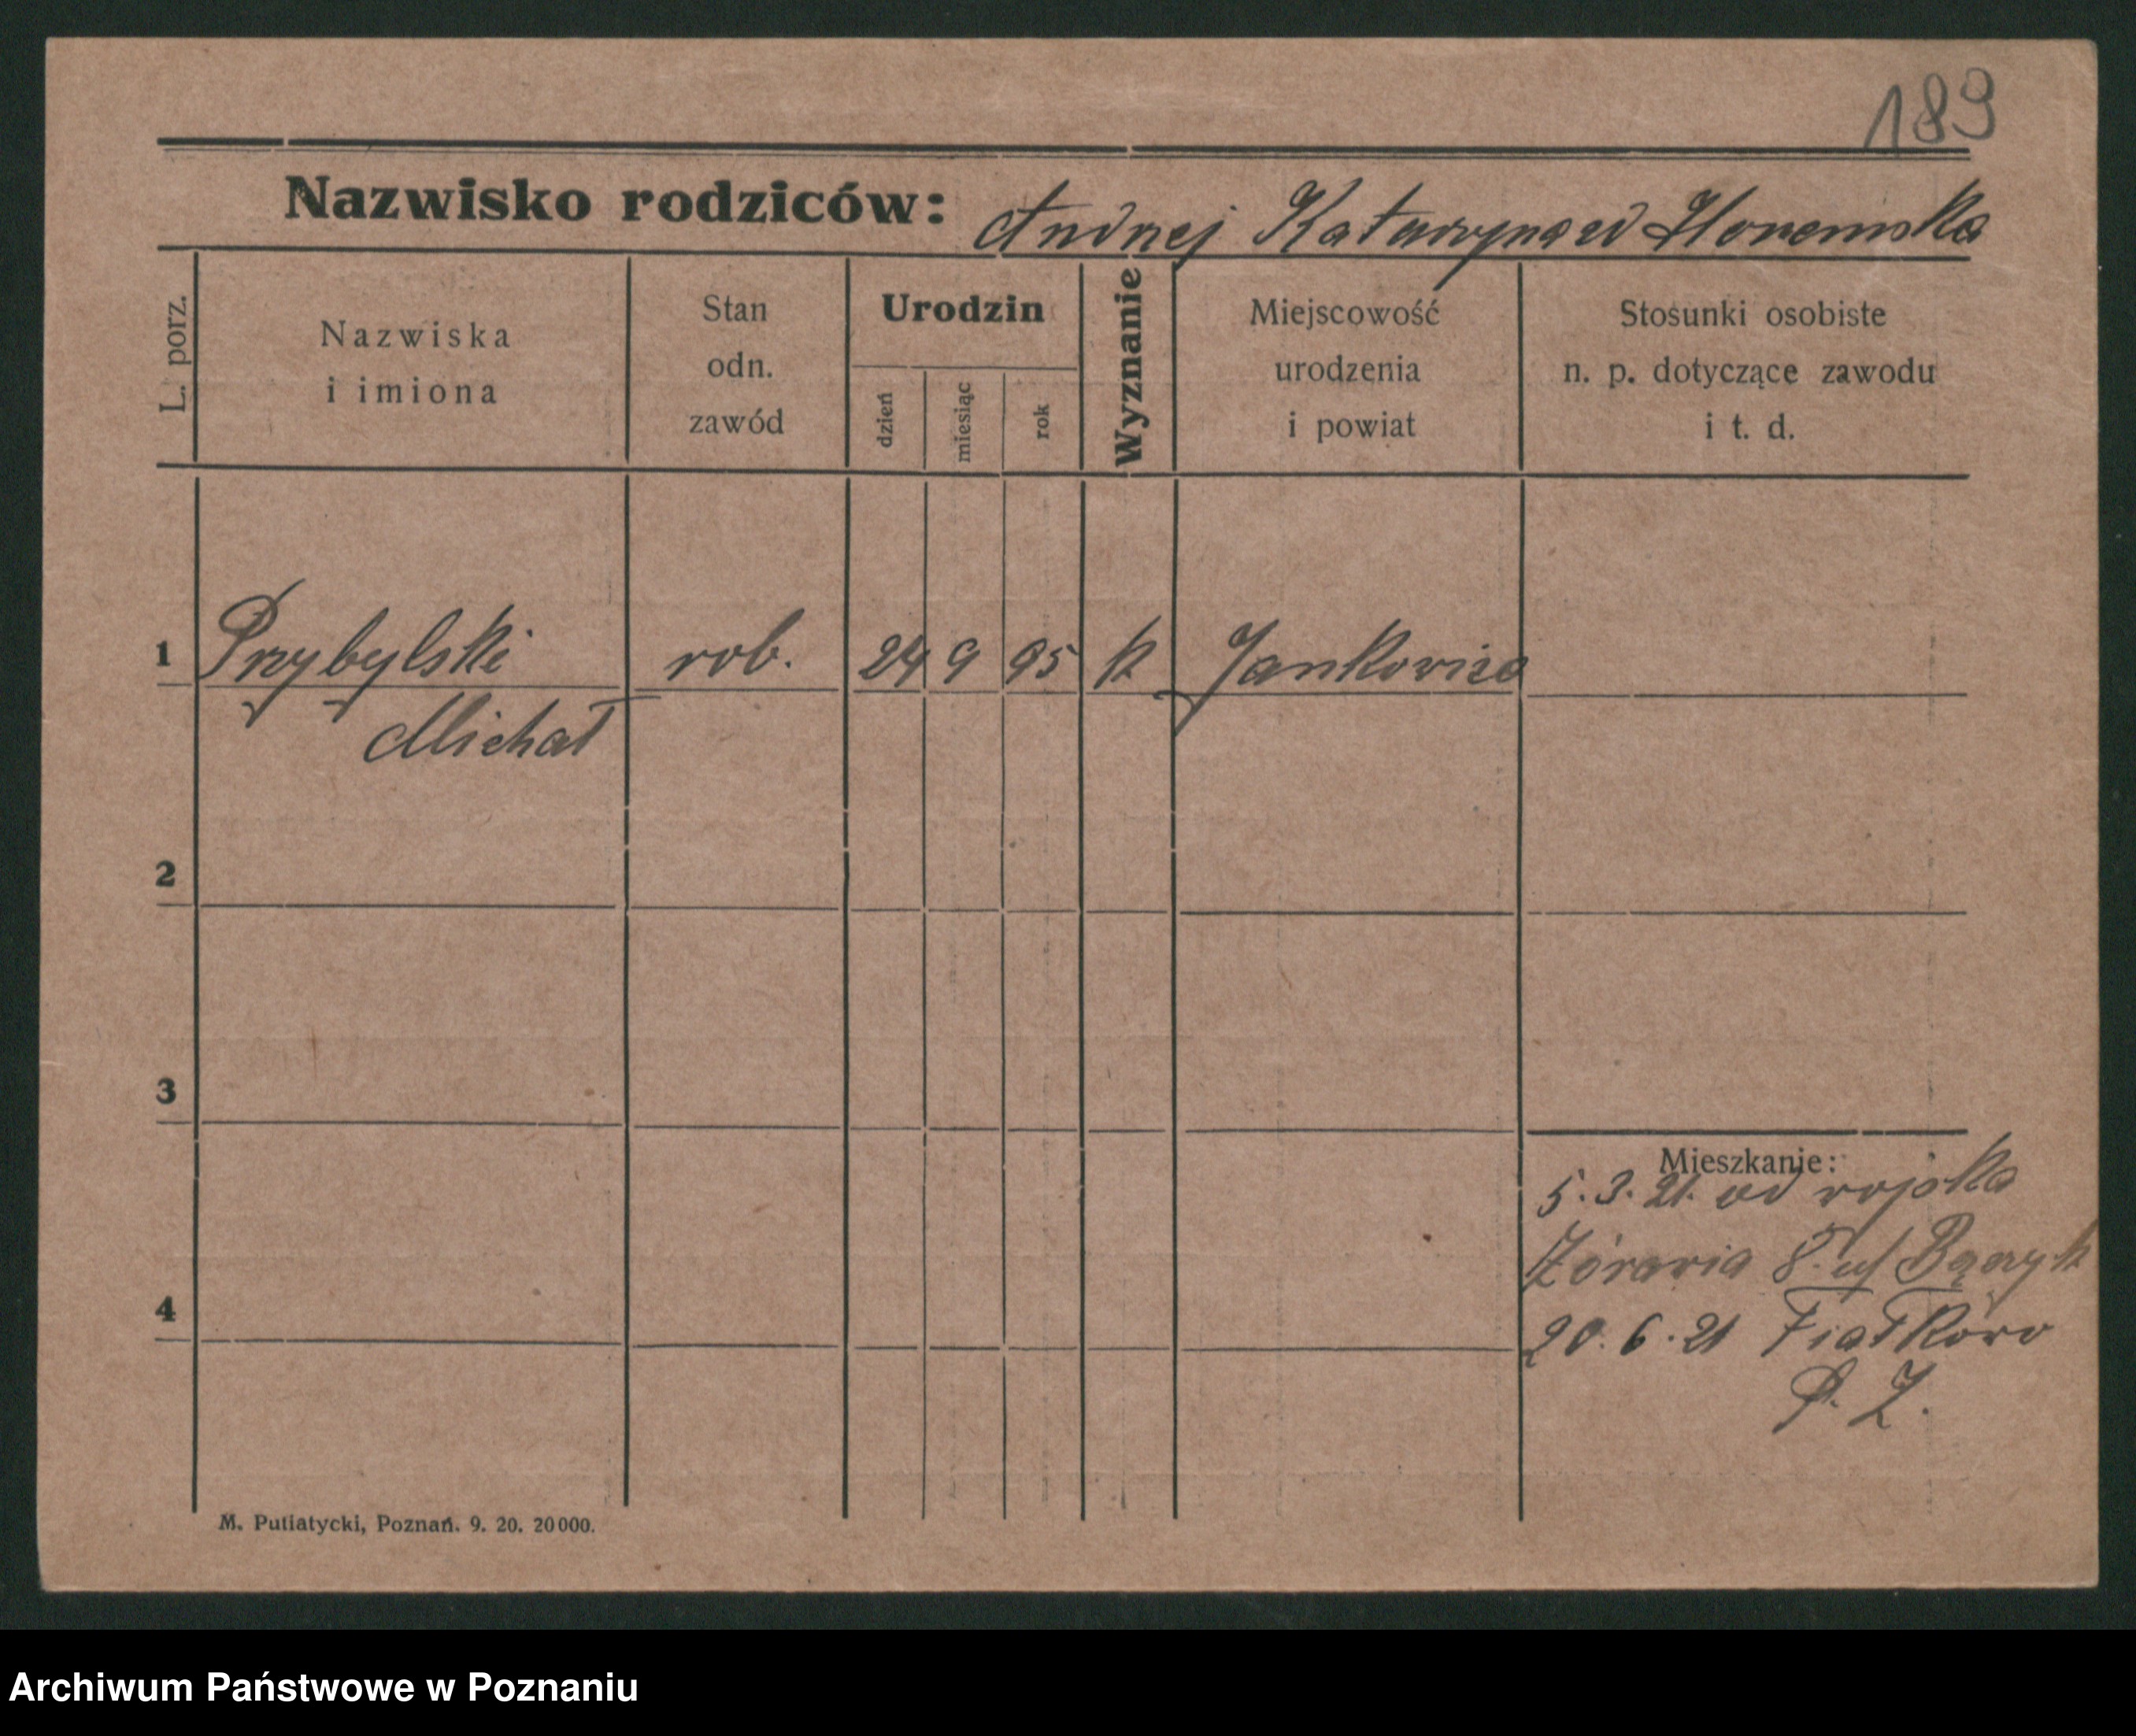 189
Nazwisko rodziców: Andrzej Katarzyna zd
L. porz.
Nazwiska
i imiona
Stan
odn.
zawód
Urodzin
dzień
miesiąc
rok
Wyznanie
Miejscowość
urodzenia
i powiat
Stosunki osobiste
n. p. dotyczące zawodu
i t. d.
1 Przybylski rob. 24 9 95 k Jankowice
Michał
2
3
Mieszkanie:
5.3.21. od wojska
Żórawia 8. u/ Bączyk
4
20.6.21 Fiałkowo
P. Z.
M. Putiatycki, Poznań. 9. 20. 20000.
Archiwum Państwowe w Poznaniu